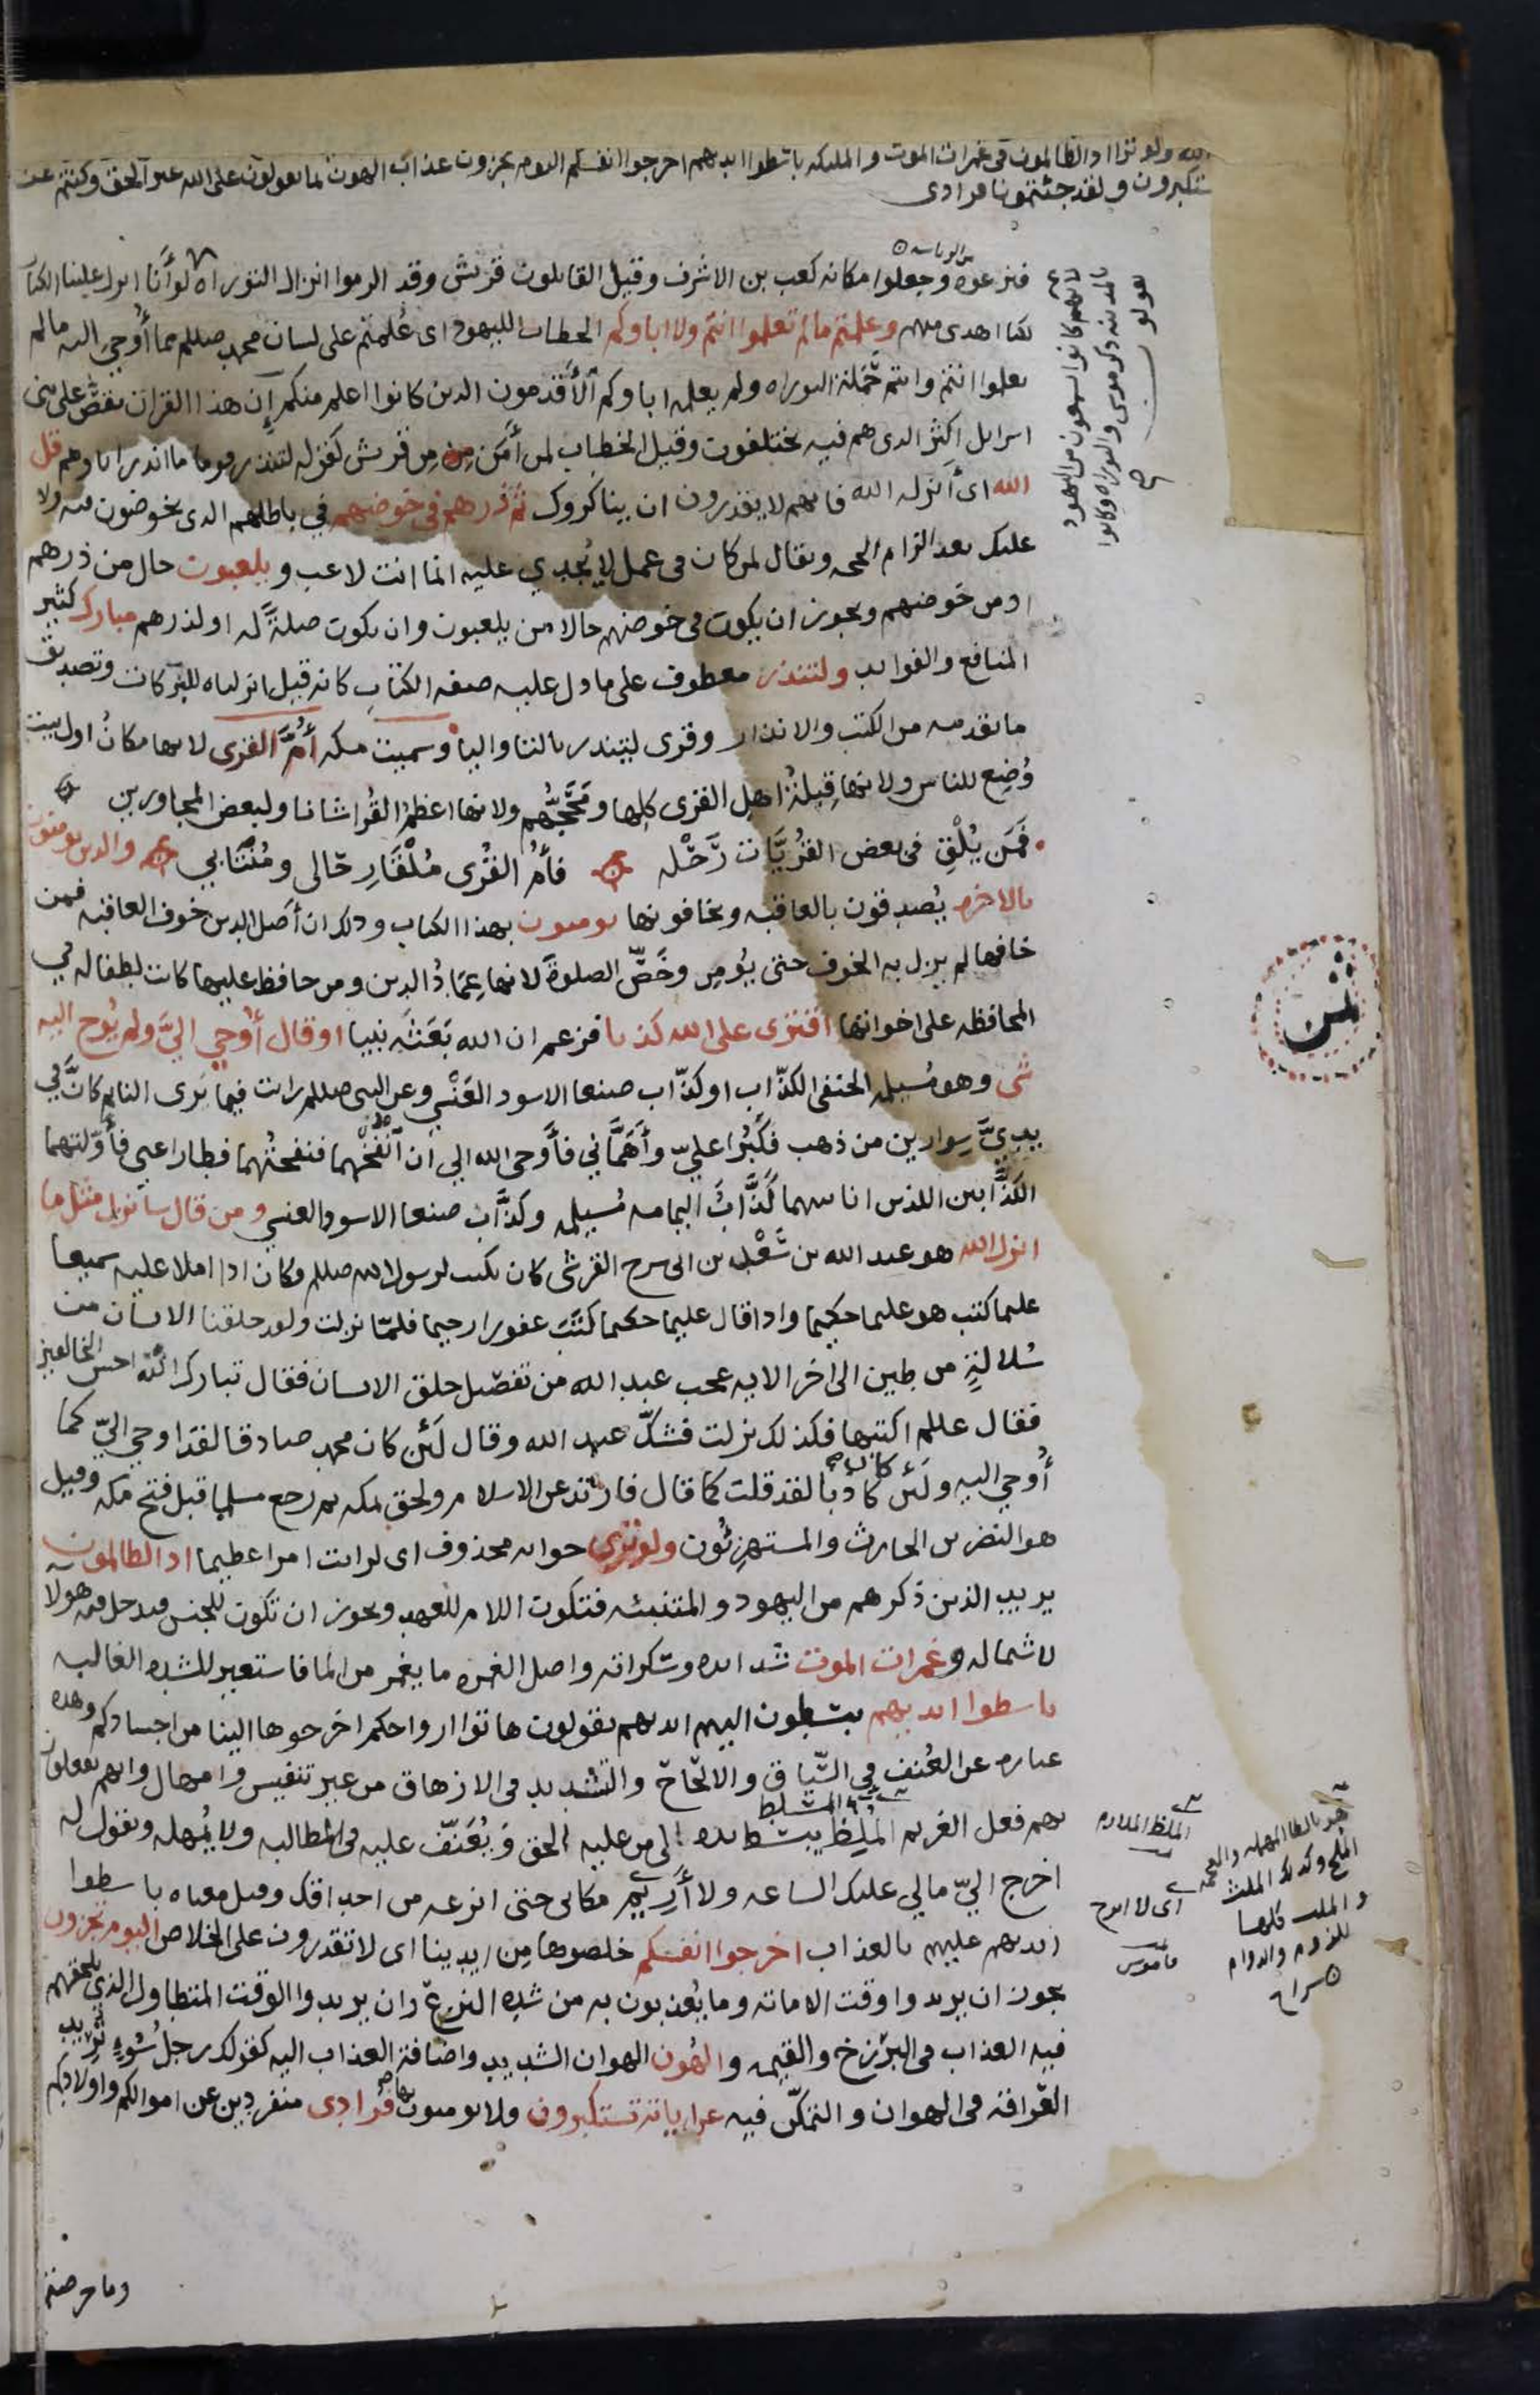 الله ولو ترا اذ الظالمون فى غمرات الموت والملىكه باسطوا اىدىهم اخرجوا انفسكم الىوم تجزون عذاب الهون ىما ىقولون على الله عىر الحق وكنتم عن
ستكبرون ولقد جئتمونا فرادى
من الرىاسه
فنزعوه وجعلوا مكانه كعب بن الاشرف وقيل القايلون قريش وقد الزموا انزال التوراه لوأنا انزل علينا الكتاب
لكنا اهدى منهم وعلمتم مالم تعلموا انتم ولا اباوكم الخطاب لليهود اى عُلمتم على لسان محمد صللم مما أُوحى اليه مالم
تعلموا انتم وانتم حَمَلة التوراه ولم يعلمه اباوكم الأقدمون الذين كانوا اعلم منكم إن هذا القران يقصُّ على بنى
اسرايل اكثر الذى هم فيه يختلفون وقيل الخطاب لمن أمن من قريش كقوله لتنذر قوما ما انذر اباوهم قل
الله اى أنزله الله فانهم لا يقدرون ان يناكروك ثم ذرهم فى خوضهم في باطلهم الذى يخوضون فيه ولا
عليك بعد الزام الحجه ويقال لمن كان فى عمل لا يُجدي عليه انما انت لاعب ويلعبون حال من ذرهم
او من خَوضهم ويجوز ان يكون فى خوضهم حالا من يلعبون وان يكون صلةً له او لذرهم مبارك كثير
المنافع والفوايد ولتنذر معطوف على ما دل عليه صفه الكتاب كانه قيل انزلناه للبركات وتصديق
ما تقدمه من الكتب والانذار وقرى لينذر بالتا واليا وسميت مكه أُمَّ القرى لانها مكانُ اول بيت
وُضِع للناس ولانها قِبلةُ اهل القرى كلها ومَحَجُّهم ولانها اعظمُ القُرا شانا ولبعض المجاورين
فَمَن يُلْقِ فى بعض القُريَّات رَحْله فأمُ القُرى مُلْقَا رِحَالى ومُنْتَابي والذين يومنون
بالاخره يُصدقون بالعاقبه ويخافونها يومنون بهذا الكتاب وذلك ان أصل الدين خوف العاقبه فمن
خافها لم يزل به الخوف حتى يُومِن وخَصَّ الصلوةَ لانها عِمَادُ الدين ومن حافظ عليها كانت لطفا له في
المحافظه على اخواتها افترى على الله كذبا فزعم ان الله بَعَثَه نبيا او قال أُوحي اليَّ ولم يُوح اليه
شى وهو مُسيلمه الحنفى الكذّاب او كذّاب صنعا الاسود العَنْسي وعن النبى صللم رايت فيما يَرى النايم كانَّ في
يديَّ سِوارين من ذهب فكَبُرا عليّ وأَهَمَّاني فأَوحى الله الي أن أنْفُخْهما فنفختُهما فطارا عنى فأوّلتهما
الكذَّابين اللذين انا بينهما كَذَّابُ اليمامه مُسيلمه وكذَّاب صنعا الاسود العنسي ومن قال سانزل مثل ما
انزل الله هو عبد الله بن سَعْد بن ابى سرح القرشى كان يكتب لرسول الله صللم وكان اذا املا عليه سميعا
عليما كتب هو عليما حكيما واذا قال عليما حكيما كَتَبَ غفورا رحيما فلمّا نزلت ولقد خلقنا الانسان من
سُلالةٍ من طين الى اخر الايه عجب عبد الله من تفصيل خلق الانسان فقال تبارك الله احسن الخالقين
فقال عللم اكتبها فكذلك نزلت فشكّ عبد الله وقال لَئن كان محمد صادقا لقد اوحي اليّ كما
أُوحي اليه ولَئن كان كاذبا لقد قلت كما قال فارتد عن الاسلام ولحق بمكه ثم رجع مسلما قبل فتح مكه وقيل
هو النضر بن الحارث والمستهزِئُون ولو ترى جوابه محذوف اى لرايت امرا عظيما اذ الظالمون
يريد الذين ذكرهم من اليهود والمتنبئه فتكون اللام للعهد ويجوز ان تكون للجنس فيدخل فيه هولا
لاشماله وغمرات الموت شدايده وسكراته واصل الغمره ما يغمر من الما فاستعير للشده الغالبه
باسطوا ايديهم يبسطون اليهم ايديهم يقولون هاتوا ارواحكم اخرجوها الينا من اجسادكم وهذه
عباره عن العُنف في السّياق والالحاح والتشديد فى الازهاق من غير تنفيس وامهال وانهم يفعلون
بهم فعل الغريم المُلِظِّ يبسط يده الى من عليه الحق ويُعَنّف عليه فى المطالبه ولا يُمهله ويقول له
اخرج اليّ مالي عليك الساعه ولا أَرِيم مكانى حتى انزعه من احداقك وقيل معناه باسطوا
ايديهم عليهم بالعذاب اخرجوا انفسكم خلصوها مِن ايدينا اى لا تقدرون على الخلاص اليوم تجزون
يجوز ان يريدوا وقت الاماته وما يُعذبون به من شده النزع وان يريدوا الوقت المتطاول الذي يلحقهم
فيه العذاب فى البرزخ والقيمه والهُون الهوان الشديد واضافة العذاب اليه كقولك رجلُ سُوءٍ يريد
العَراقه فى الهوان والتمكّن فيه عن اياته تستكبرون ولا يومنون بها فُرادى منفردين عن اموالكم واولادكم
وما حرصتم
لانهم كانوا يسمعون من اليهود
بالمدينه ذكر موسى والتوراه وكانوا
يقولو
ثمن
الملظ الملازم
اى لا ابرح
قاموس
الملح وكذلك الملث
للزوم والدوام